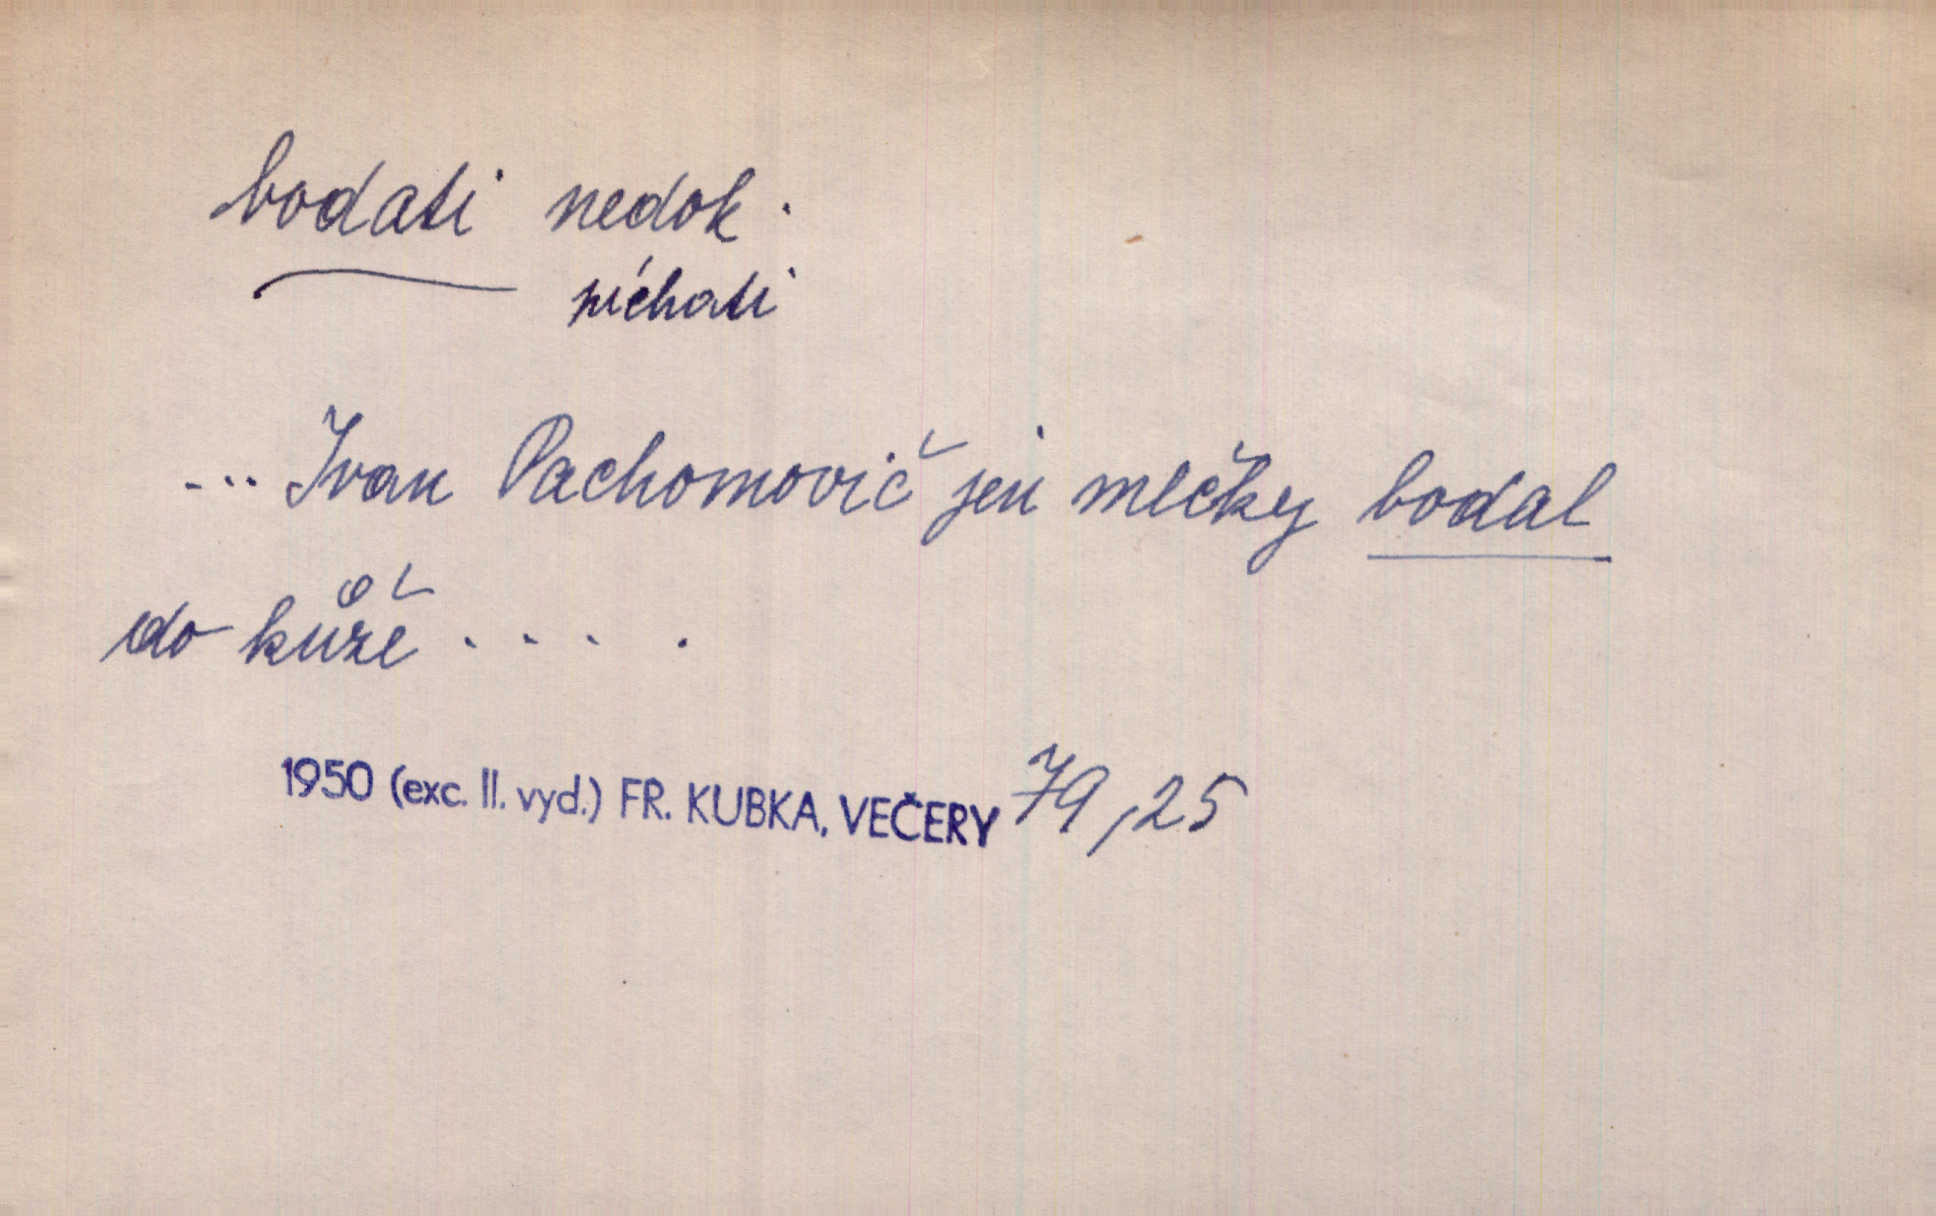 bodati nedok.
píchati
... Ivan Pachomovič jen mlčky bodal
do kůže . . . .
1950 (exc. II. vyd.) FR. KUBKA, VEČERY 79,25